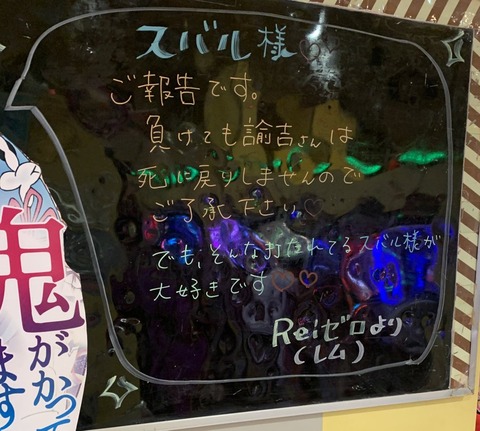 スバル様♡
ご報告です。
負けても諭吉さんは
死に戻りしませんので
ご了承下さい。♡
でも、そんな打たれてるスバル様が
大好きです♡♡
Reiゼロより
(レム)
鬼がかって
ます